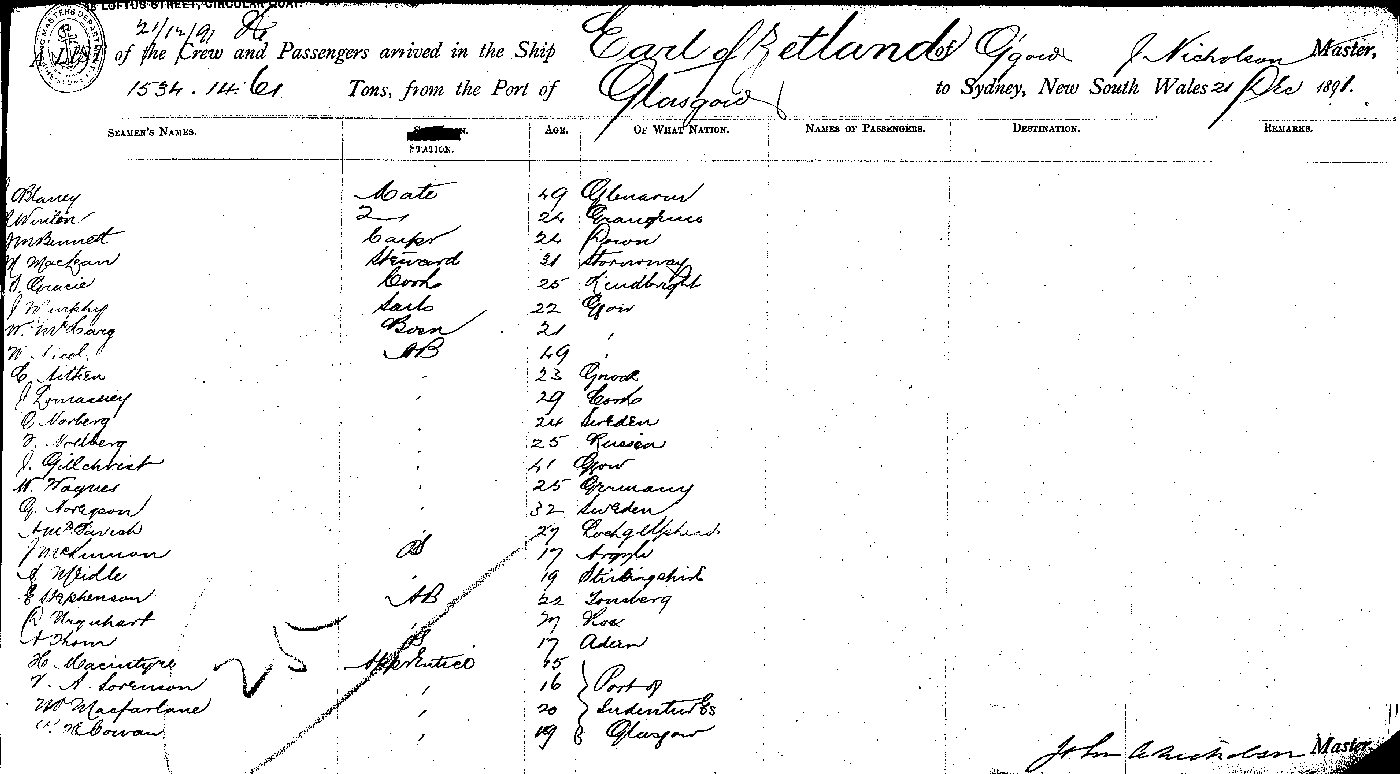 LOFTUS STREET, CIRCULAR QUAY.
21/12/91
LIST of the Crew and Passengers arrived in the Ship Earl of Zetland of G'gow J Nicholson Master,
1534.14.61 Tons, from the Port of Glasgow to Sydney, New South Wales 21 Dec 1891.
SEAMEN'S NAMES. STATION. AGE. OF WHAT NATION. NAMES OF PASSENGERS. DESTINATION. REMARKS.
Blaney Mate 49 Glenarm
Winton 2 " 24
Bennett Carpr 24 Down
MacLean Steward 31 Stornoway
Gracie Cook 25 Kirkcudbright
J Murphy Sails 22 Ggow
W. McHarg Bosn 21 "
W. Nicol. AB 49 "
C. Aitken " 23 Gnock
J Lomassney " 29 Cork
C. Norberg " 24 Sweden
F. Nordberg " 25 Russia
J. Gilchrist " 41 Ggow
W. Wagner " 25 Germany
G. Noregson " 32 Sweden
A McTavish " 27 Lochgilphead
J McKinnon OS 17 Argyle
A. Meidle " 19 Stirlingshire
E Stephenson AB 22 Tonsberg
R Urquhart " 27
A Thom B 17 Adeen
H. Macintyre Apprentice 15
T. A. Sorenson " 16 Port of
W Macfarlane " 20 Indentures
W. H Cowan " 19 Glasgow
25
John Nicholson Master.